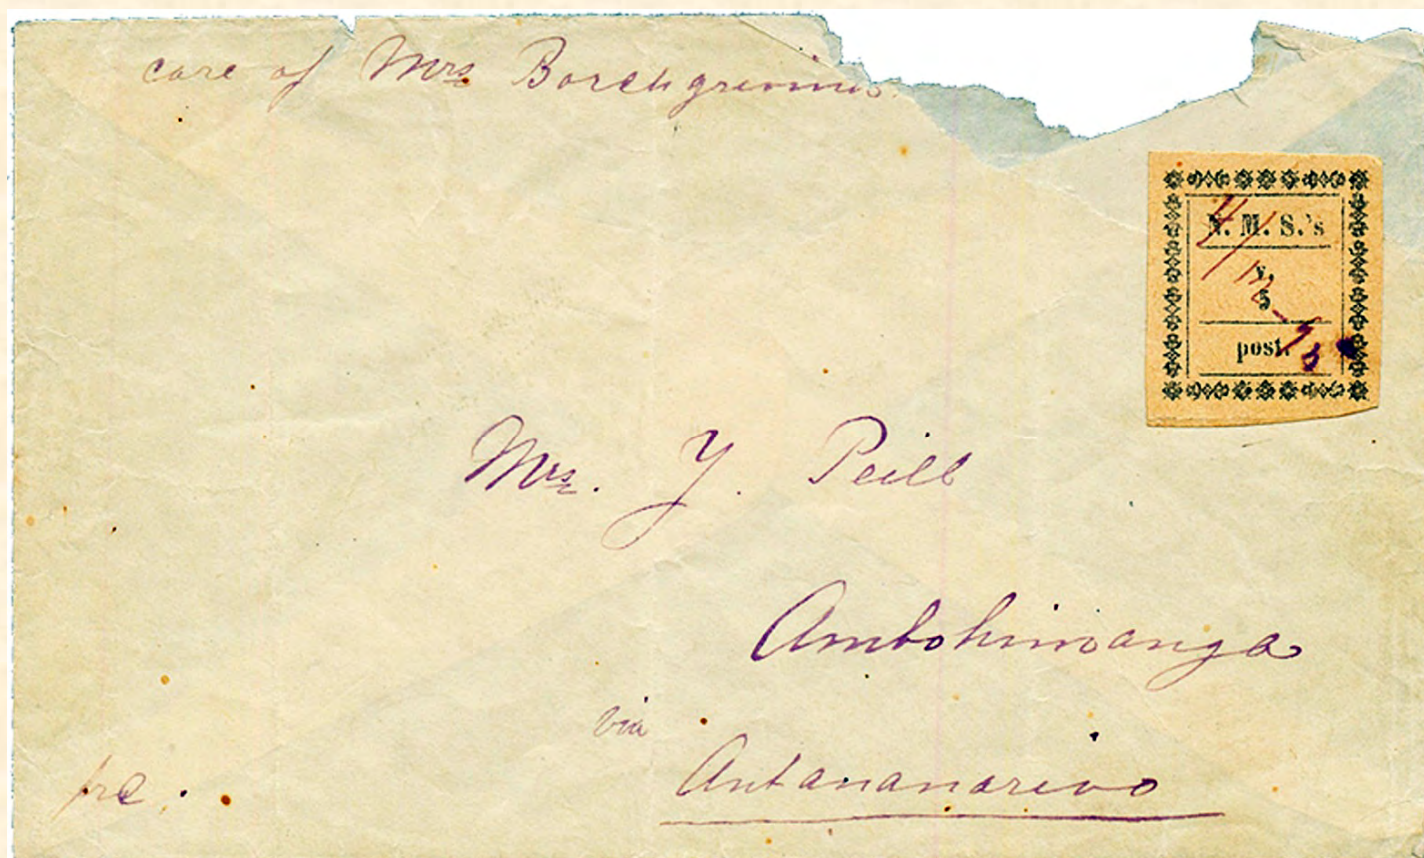 care of Mrs Borchgrevink
N. M. S.'s
v.
5
post.
4/12-95
Mrs. J. Peill
Ambohimanga
via
Antananarivo